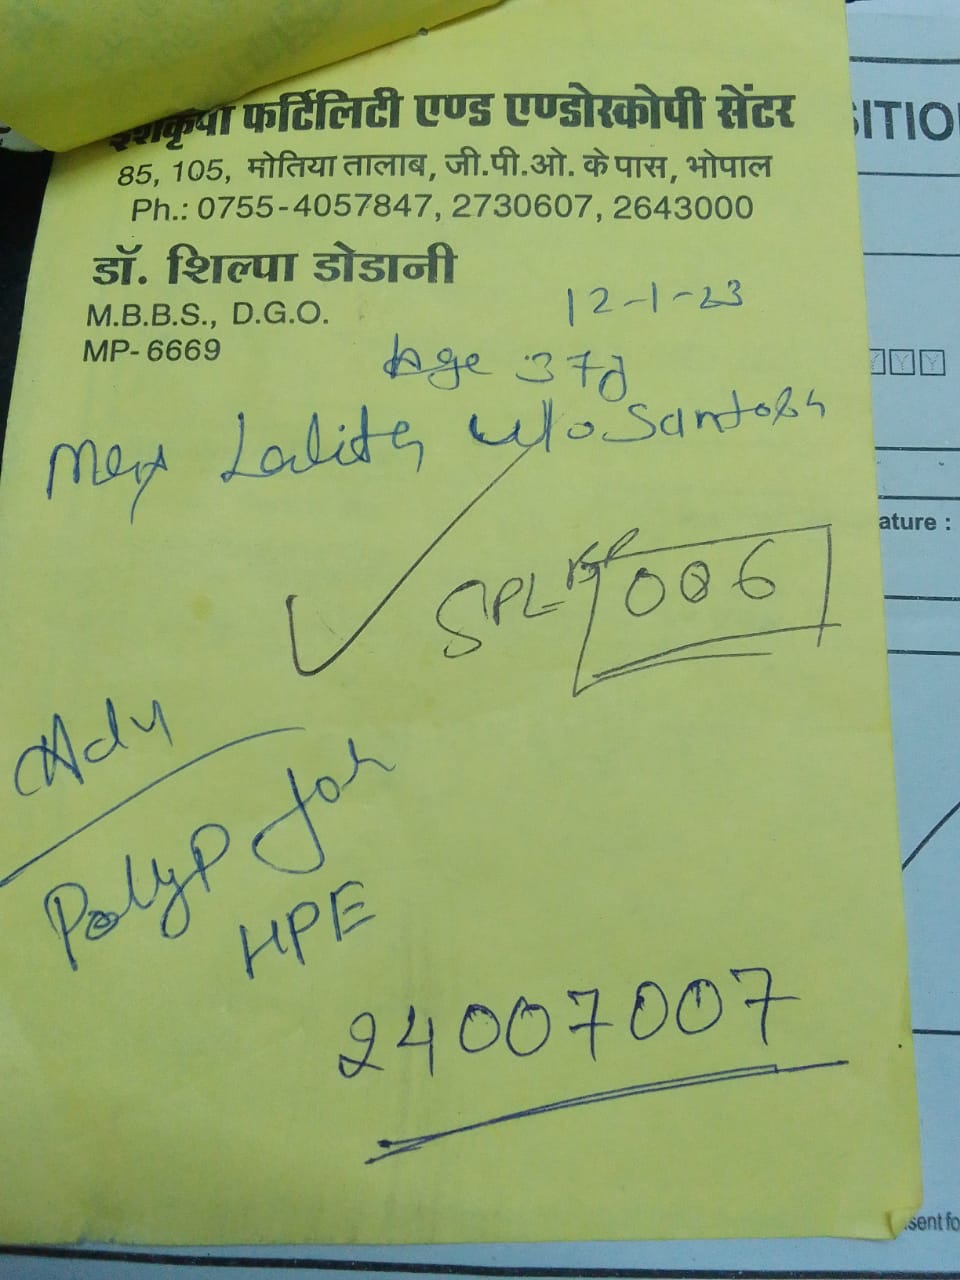 ईशकृपा फर्टिलिटी एण्ड एण्डोस्कोपी सेंटर
85, 105, मोतिया तालाब, जी.पी.ओ. के पास, भोपाल
Ph.: 0755-4057847, 2730607, 2643000
डॉ. शिल्पा डोडानी
M.B.B.S., D.G.O.
MP-6669
12-1-23
Age 37y
Lalita w/o Santosh
SPL 006
Adv
Polyp for
HPE
24007007
SITIO
YY
ature :
sent fo